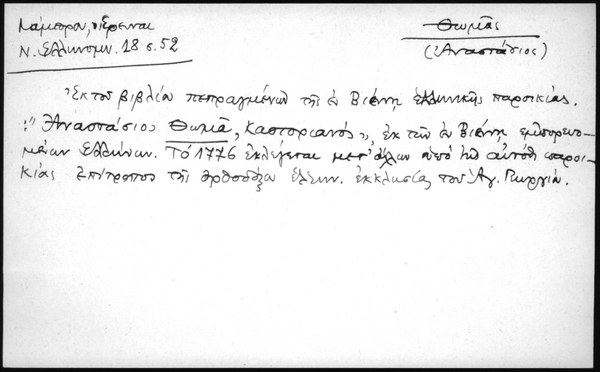 Λάμπρου, ἔρευναι
Ν. Ἑλληνομν. 18 σ. 52
Θωμᾶς
(Ἀναστάσιος)
Ἐκ τοῦ βιβλίου πεπραγμένων τῆς ἐν Βιέννῃ ἑλληνικῆς παροικίας.
"Ἀναστάσιος Θωμᾶ, Καστοριανός", ἐκ τῶν ἐν Βιέννῃ ἐμπορευο-
μένων Ἑλλήνων. Τὸ 1776 ἐκλέγεται μετ' ἄλλων ὑπὸ τῆς αὐτόθι παροι-
κίας ἐπίτροπος τῆς ὀρθοδόξου ἑλλην. ἐκκλησίας τοῦ Ἁγ. Γεωργίου.